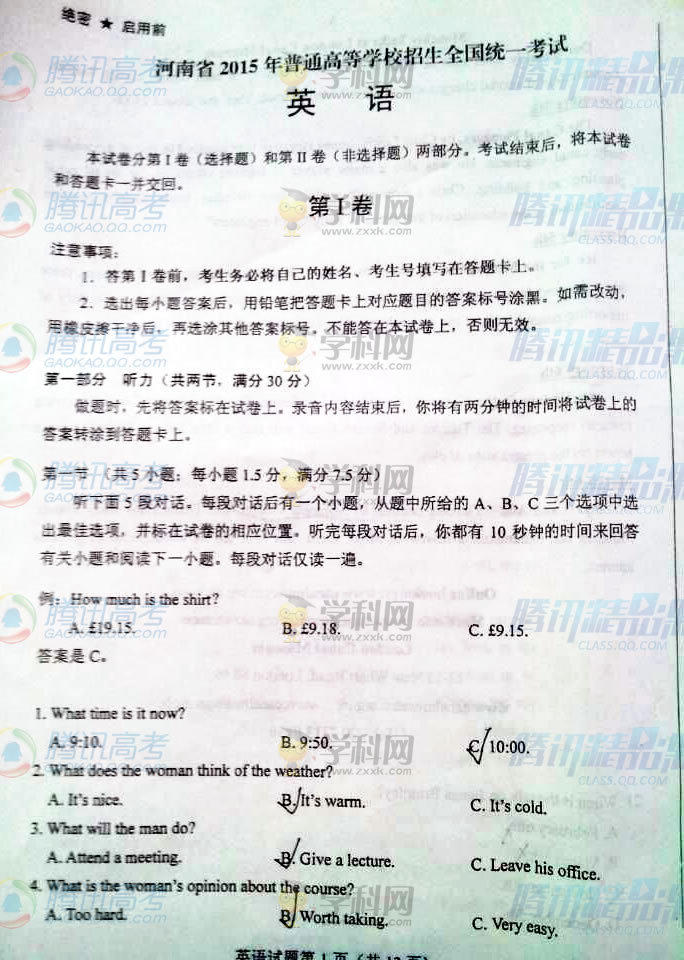 绝密 ★ 启用前
河南省 2015 年普通高等学校招生全国统一考试
英 语
本试卷分第 I 卷（选择题）和第 II 卷（非选择题）两部分。考试结束后，将本试卷
和答题卡一并交回。
第 I 卷
注意事项：
1. 答第 I 卷前，考生务必将自己的姓名、考生号填写在答题卡上。
2. 选出每小题答案后，用铅笔把答题卡上对应题目的答案标号涂黑。如需改动，
用橡皮擦干净后，再选涂其他答案标号。不能答在本试卷上，否则无效。
第一部分 听力（共两节，满分 30 分）
做题时，先将答案标在试卷上。录音内容结束后，你将有两分钟的时间将试卷上的
答案转涂到答题卡上。
第一节 （共 5 小题；每小题 1.5 分，满分 7.5 分）
听下面 5 段对话。每段对话后有一个小题，从题中所给的 A、B、C 三个选项中选
出最佳选项，并标在试卷的相应位置。听完每段对话后，你都有 10 秒钟的时间来回答
有关小题和阅读下一小题。每段对话仅读一遍。
例：How much is the shirt?
A. £19.15. B. £9.18. C. £9.15.
答案是 C。
1. What time is it now?
A. 9:10. B. 9:50. C. 10:00.
2. What does the woman think of the weather?
A. It's nice. B. It's warm. C. It's cold.
3. What will the man do?
A. Attend a meeting. B. Give a lecture. C. Leave his office.
4. What is the woman's opinion about the course?
A. Too hard. B. Worth taking. C. Very easy.
英语试题第 1 页（共 12 页）
腾讯高考
GAOKAO.QQ.COM
学科网
www.zxxk.com
腾讯精品课
CLASS.QQ.COM